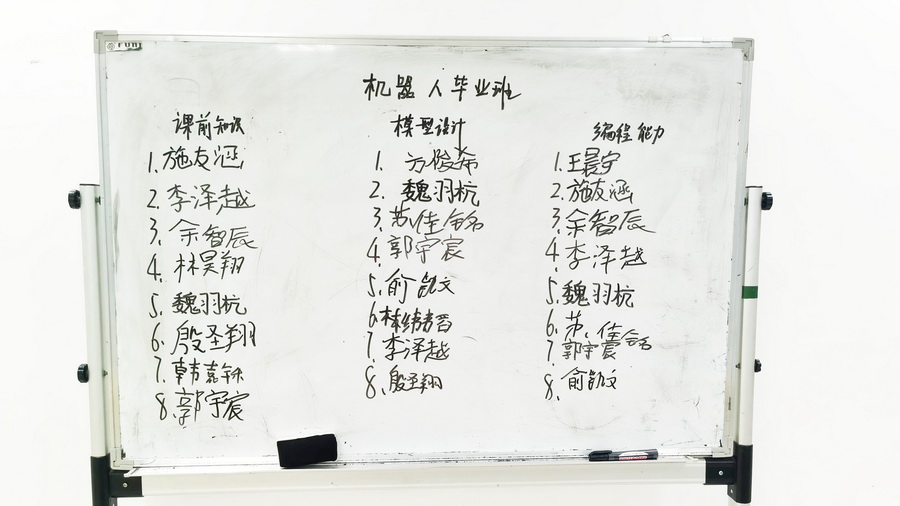 机器人毕业班
课前知识
1.施友涵
2.李泽越
3.余智辰
4.林昊翔
5.魏羽杭
6.殷圣翔
7.韩嘉
8.郭宇宸
模型设计
1.方陵希
2.魏羽杭
3.苏佳铭
4.郭宇宸
5.俞凯文
6.林
7.李泽越
8.殷圣翔
编程能力
1.王晨宇
2.施友涵
3.余智辰
4.李泽越
5.魏羽杭
6.苏佳
7.郭宇宸
8.俞凯文